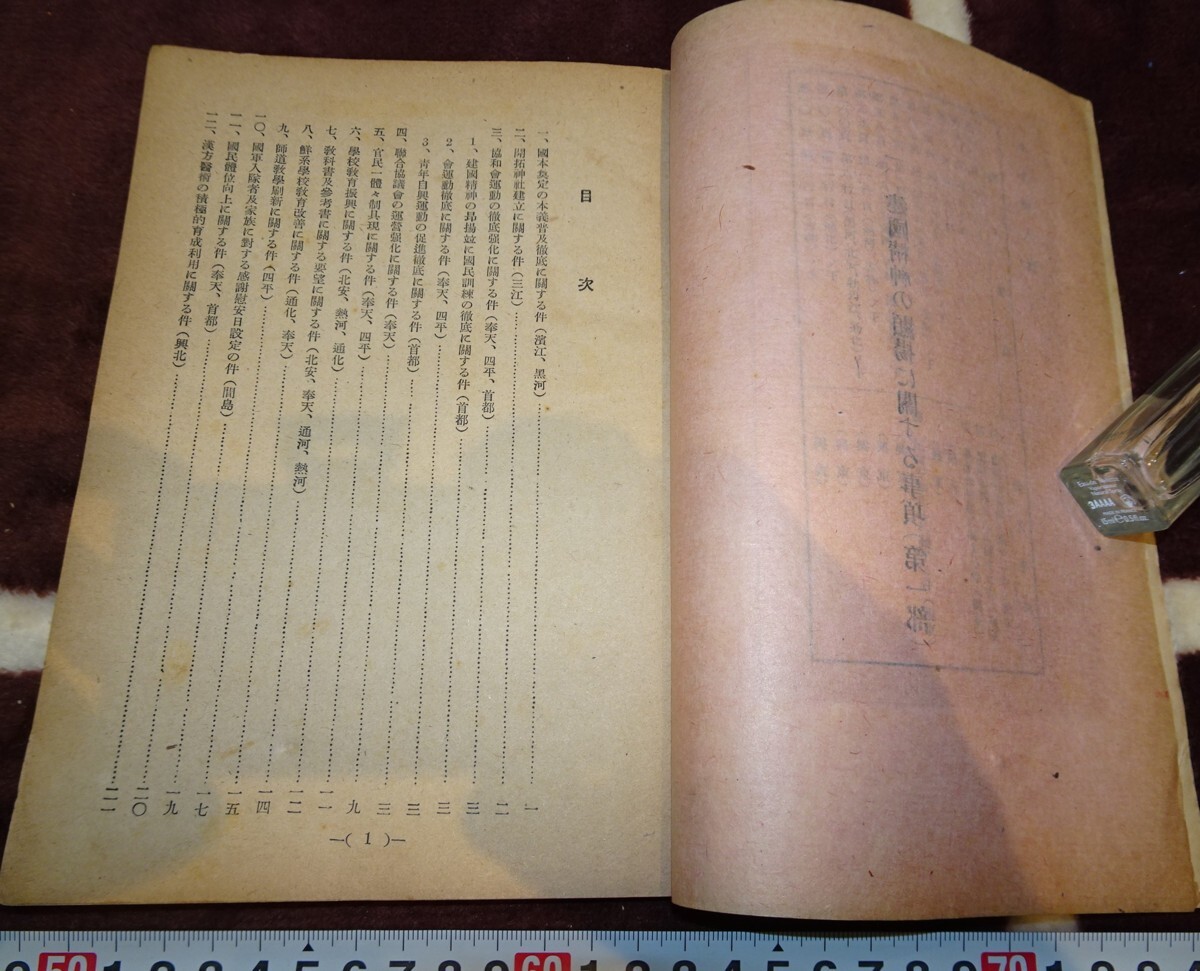 目次
一、國本奠定の本義普及徹底に關する件(濱江、黒河)……一
二、開拓神社建立に關する件(三江)……二
三、協和會運動の徹底强化に關する件(奉天、四平、首都)……三
1、建國精神の昻揚竝に國民訓練の徹底に關する件(首都)……三
2、會運動徹底に關する件(奉天、四平)……三
3、靑年自興運動の促進徹底に關する件(首都)……三
四、聯合協議會の運營强化に關する件(奉天)……九
五、官民一體々制具現に關する件(奉天、四平)……一一
六、學校敎育振興に關する件(北安、熱河、通化)……一二
七、敎科書及參考書に關する要望に關する件(北安、奉天、通河、熱河)……一四
八、鮮系學校敎育改善に關する件(通化、奉天)……一五
九、師道敎學刷新に關する件(四平)……一七
一〇、國軍入隊者及家族に對する感謝慰安日設定の件(間島)……一九
一一、國民體位向上に關する件(奉天、首都)……二〇
一二、漢方醫術の積極的育成利用に關する件(興北)……二一
—( 1 )—
建國精神の顯揚に關する事項(第一部)
50 1 2 3 4 5 6 7 8 9 60 1 2 3 4 5 6 7 8 9 70 1 2 3